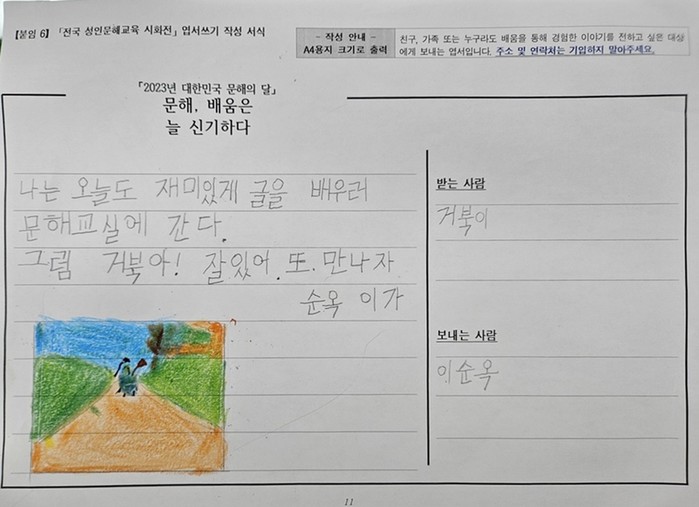 [붙임 6] 「전국 성인문해교육 시화전」 엽서쓰기 작성 서식
- 작성 안내 -
A4용지 크기로 출력
친구, 가족 또는 누구라도 배움을 통해 경험한 이야기를 전하고 싶은 대상
에게 보내는 엽서입니다. 주소 및 연락처는 기입하지 말아주세요.
「2023년 대한민국 문해의 달」
문해, 배움은
늘 신기하다
나는 오늘도 재미있게 글을 배우러
문해교실에 간다.
그럼 거북아! 잘있어. 또. 만나자
순옥 이가
받는 사람
거북이
보내는 사람
이순옥
11